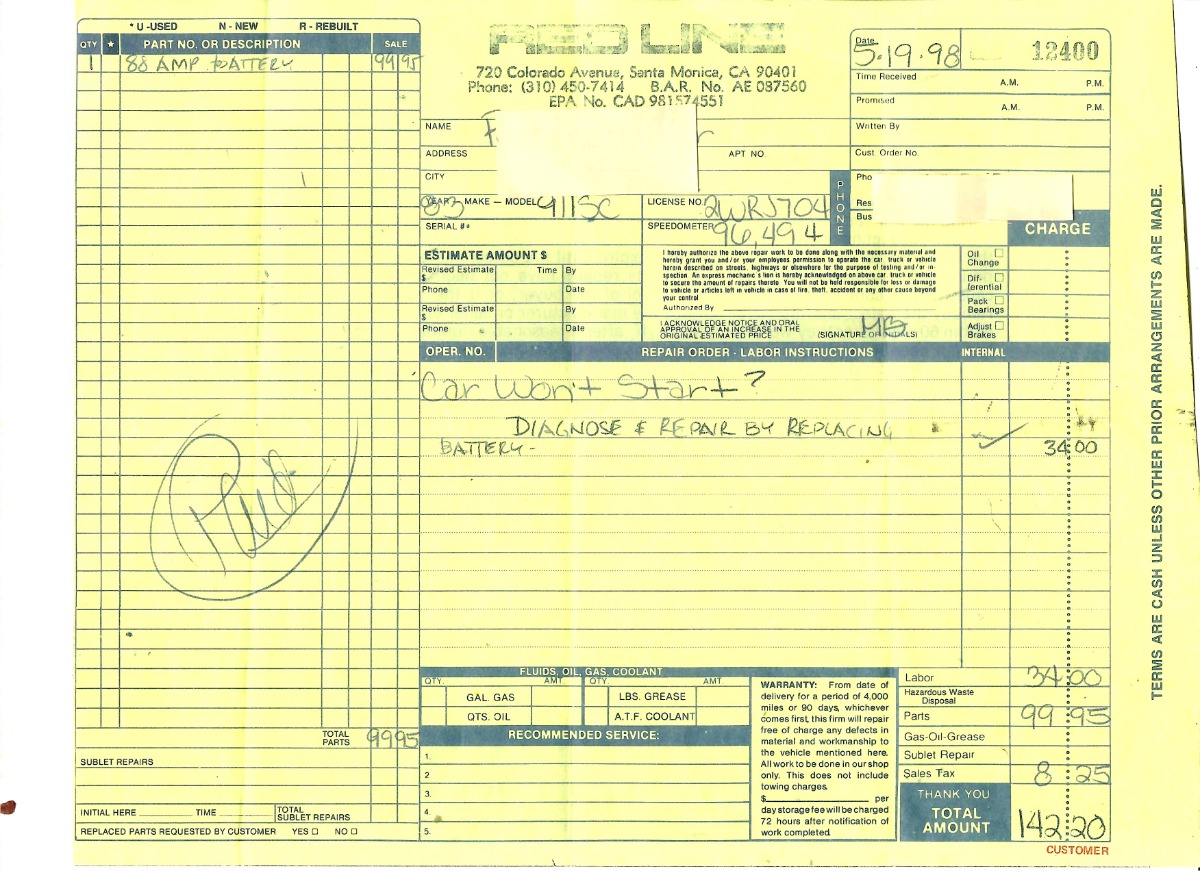 * U -USED N - NEW R - REBUILT
QTY * PART NO. OR DESCRIPTION SALE
1 88 AMP BATTERY 99 95
TOTAL PARTS 99 95
SUBLET REPAIRS
INITIAL HERE TIME TOTAL SUBLET REPAIRS
REPLACED PARTS REQUESTED BY CUSTOMER YES NO
Paid
RED LINE
720 Colorado Avenue, Santa Monica, CA 90401
Phone: (310) 450-7414 B.A.R. No. AE 087560
EPA No. CAD 981574551
Date 5-19-98 12400
Time Received A.M. P.M.
Promised A.M. P.M.
Written By
Cust. Order No.
NAME
ADDRESS APT NO
CITY
PHONE
Pho
Res
Bus
YEAR MAKE — MODEL 83 911SC LICENSE NO. 2WRJ704
SERIAL # SPEEDOMETER 96,494
CHARGE
ESTIMATE AMOUNT $
Revised Estimate $ Time By
Phone Date
Revised Estimate $ By
Phone Date
I hereby authorize the above repair work to be done along with the necessary material and
hereby grant you and/or your employees permission to operate the car, truck or vehicle
herein described on streets, highways or elsewhere for the purpose of testing and/or in-
spection. An express mechanic's lien is hereby acknowledged on above car, truck or vehicle
to secure the amount of repairs thereto. You will not be held responsible for loss or damage
to vehicle or articles left in vehicle in case of fire, theft, accident or any other cause beyond
your control
Authorized By
I ACKNOWLEDGE NOTICE AND ORAL
APPROVAL OF AN INCREASE IN THE
ORIGINAL ESTIMATED PRICE (SIGNATURE OR INITIALS)
Oil Change
Dif- ferential
Pack Bearings
Adjust Brakes
OPER. NO. REPAIR ORDER - LABOR INSTRUCTIONS INTERNAL
Car Won't Start?
DIAGNOSE & REPAIR BY REPLACING
BATTERY - 34 00
FLUIDS, OIL, GAS, COOLANT
QTY. AMT QTY. AMT
GAL. GAS LBS. GREASE
QTS. OIL A.T.F. COOLANT
RECOMMENDED SERVICE:
1.
2
3.
4.
5.
WARRANTY: From date of
delivery for a period of 4,000
miles or 90 days, whichever
comes first, this firm will repair
free of charge any defects in
material and workmanship to
the vehicle mentioned here.
All work to be done in our shop
only. This does not include
towing charges.
$ per
day storage fee will be charged
72 hours after notification of
work completed.
Labor 34 00
Hazardous Waste Disposal
Parts 99 95
Gas-Oil-Grease
Sublet Repair
Sales Tax 8 25
THANK YOU
TOTAL AMOUNT 142 20
CUSTOMER
TERMS ARE CASH UNLESS OTHER PRIOR ARRANGEMENTS ARE MADE.